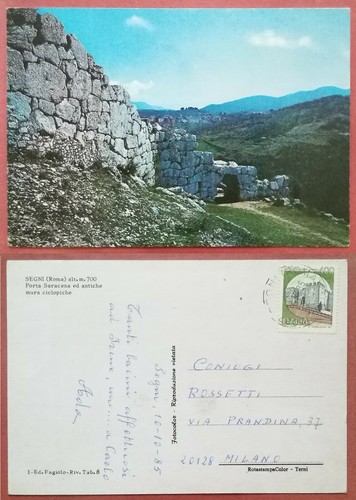 SEGNI (Roma) alt. m. 700
Porta Saracena ed antiche
mura ciclopiche
Segni, 10-10-85
Tanti bacini affettuosi
ad Irene, un a Carlo
Ada
Fotocolor - Riproduzione vietata
400
CONIUGI
ROSSETTI
VIA PRANDINA, 37
20128 MILANO
1-Ed. Fagiolo-Riv. Tab. 8
RotastampaColor - Terni